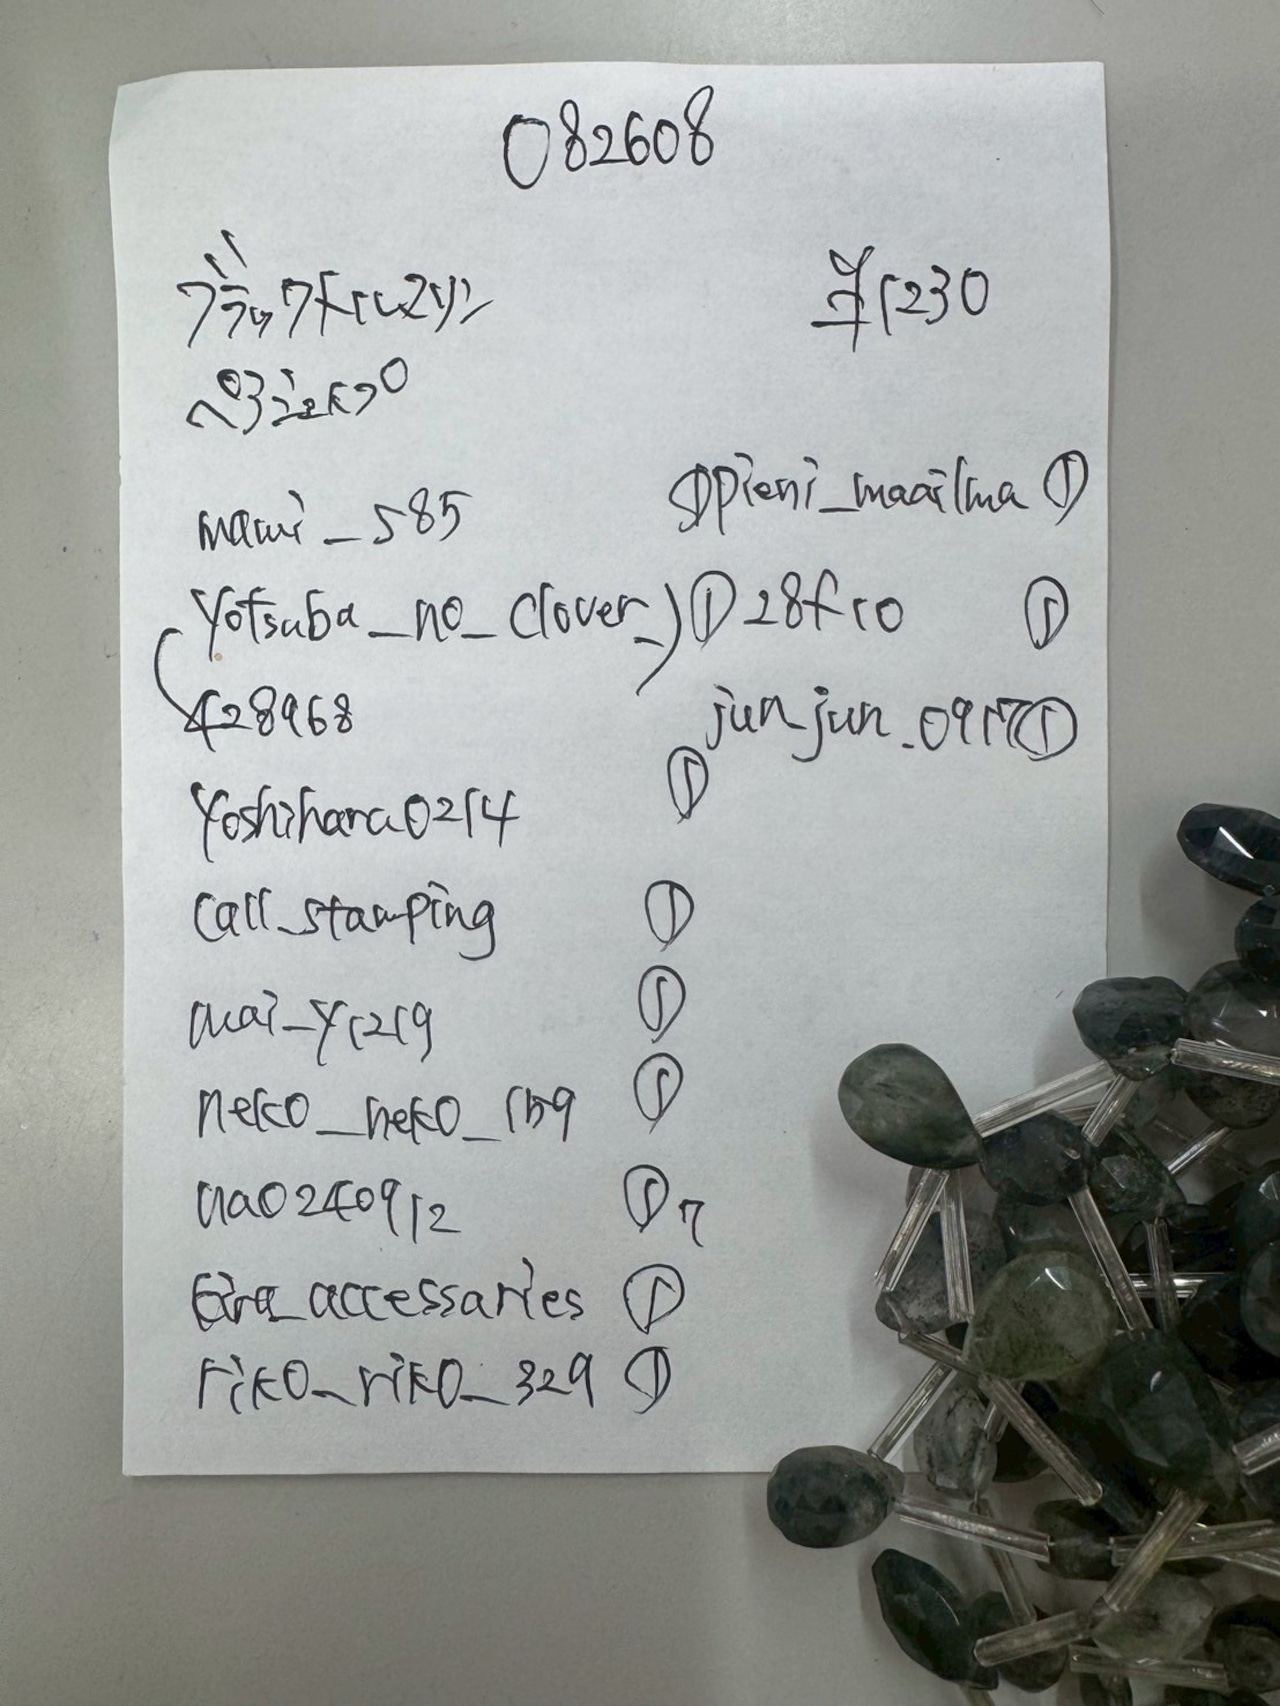 082608
半1230
mami_585 ①
yotsuba_no_clover_ ①
428968
yoshihara0214 ①
call_stamping ①
mai_y1219 ①
neko_neko_159 ①
aa0240912 ①
accessaries ①
riko_riko_329 ①
pieni_maailma ①
28f10 ①
junjun_0917 ①